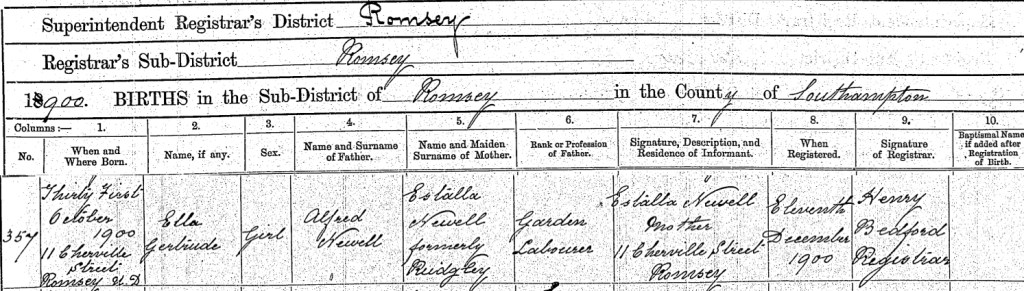 Superintendent Registrar's District Romsey
Registrar's Sub-District Romsey
1900. BIRTHS in the Sub-District of Romsey in the County of Southampton
Columns :— 1. 2. 3. 4. 5. 6. 7. 8. 9. 10.
No. When and Where Born. Name, if any. Sex. Name and Surname of Father. Name and Maiden Surname of Mother. Rank or Profession of Father. Signature, Description, and Residence of Informant. When Registered. Signature of Registrar. Baptismal Name if added after Registration of Birth.
357
Thirty First
October
1900
11 Cherville
Street
Romsey U.D
Ella
Gertrude
Girl
Alfred
Newell
Estalla
Newell
formerly
Ruidgley
Garden
Labourer
Estalla Newell
Mother
11 Cherville Street
Romsey
Eleventh
December
1900
Henry
Bedford
Registrar